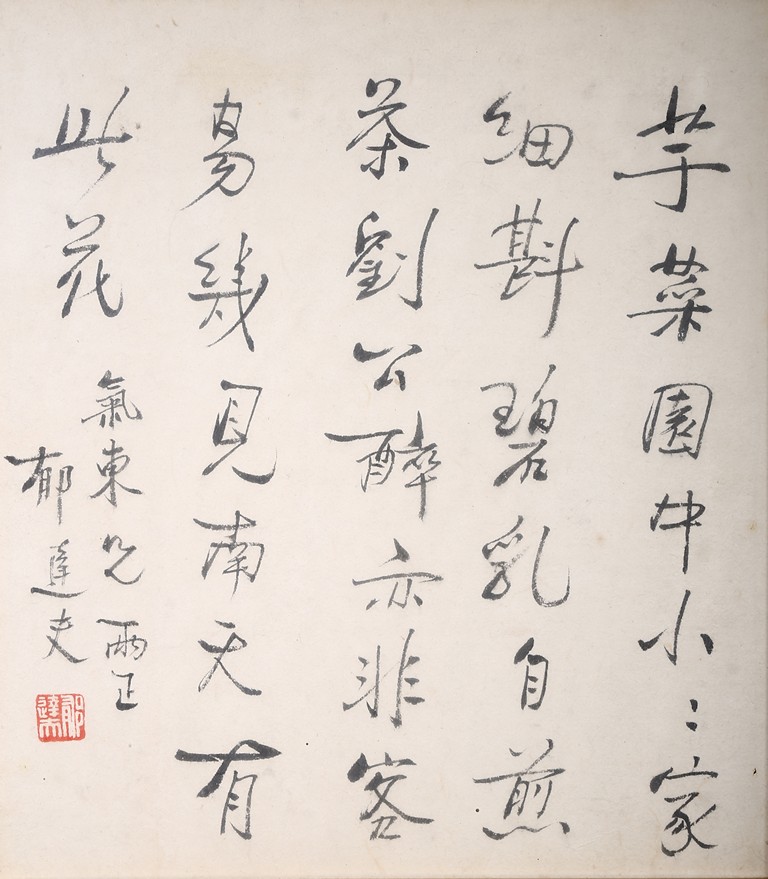 芋菜園中小〻家
細斟碧乳自煎
茶劉公醉亦非容
易幾見南天有
此花
氣東兄兩正
郁達夫
郁達夫